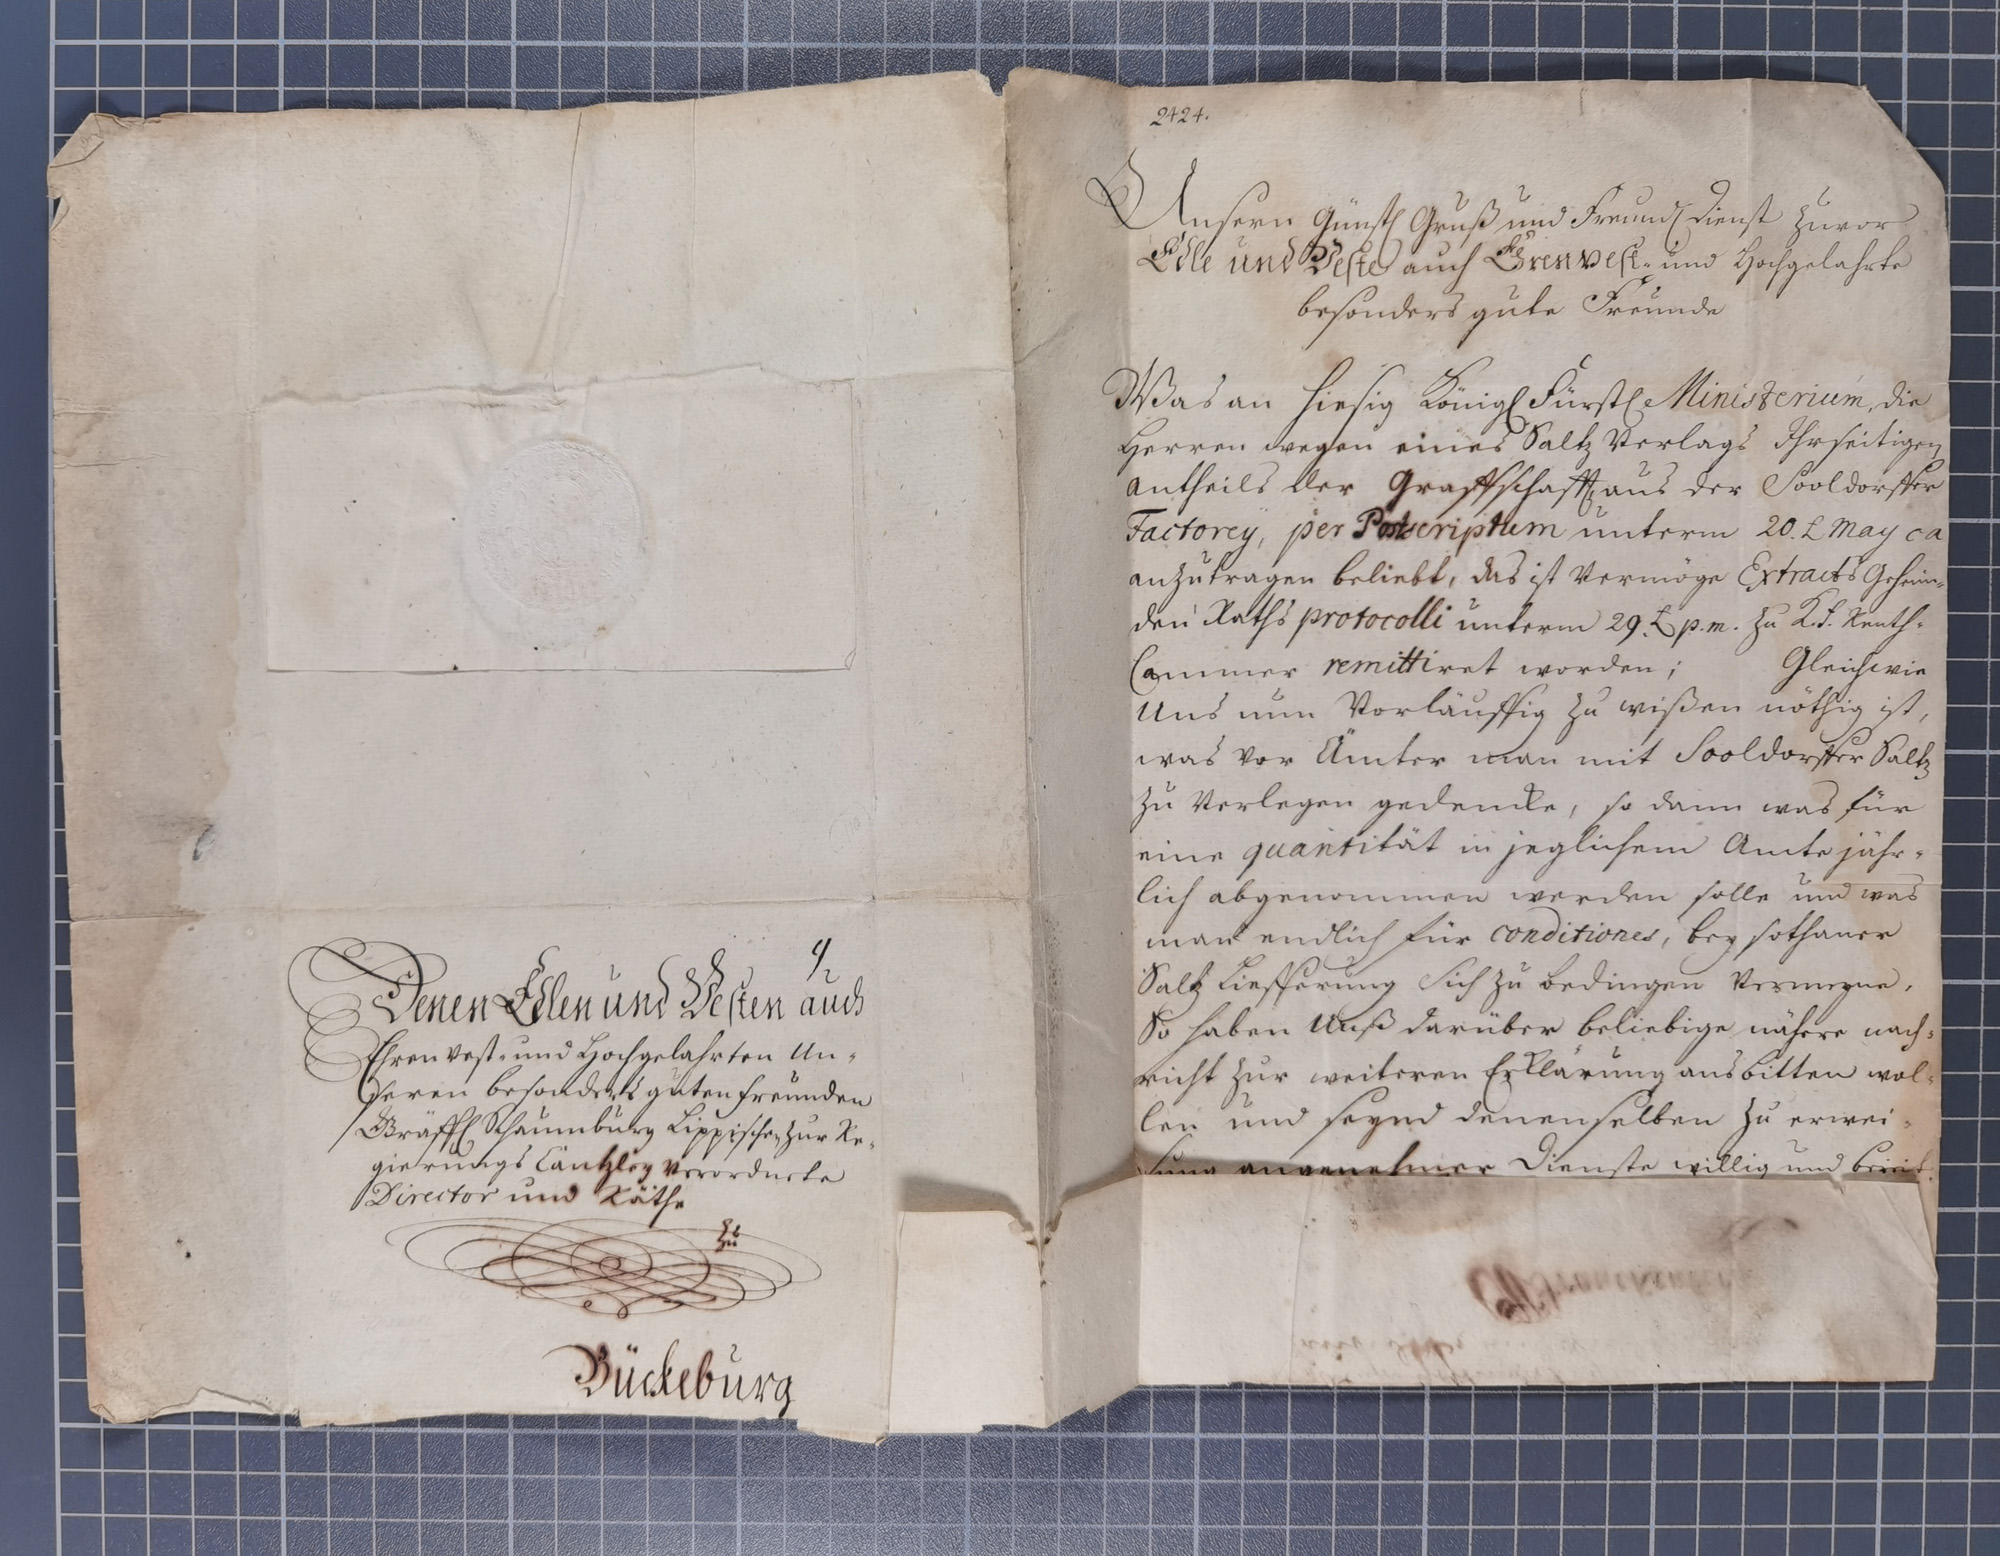 2424.
Unsern Günstl Gruß und Freundl Dienst zuvor
Edle und Veste auch Ehrenvest- und Hochgelahrte
besonders gute Freunde
Was an hiesig Königl Fürstl Ministerium, die
Herren wegen eines Saltz Verlags Ihrseitigen
antheils der Graffschafft, aus der Sooldorffer
Factorey, per Postscriptum unterm 20.t May ca
anzutragen beliebt, das ist Vermöge Extracts Geheim-
den Raths protocolli unterm 29.t p.m. zu K.F. Renth-
Cammer remittiret worden; Gleichwie
Uns nun Vorläuffig zu wißen nöthig ist,
was vor Ämter man mit Sooldorffer Saltz
zu Verlegen gedencke, so dann was für
eine quantität in jeglichem Amte jähr-
lich abgenommen werden solle und was
man endlich für conditiones, bey sothaner
Saltz Liefferung Sich zu bedingen Vermeyne,
So haben Unß darüber beliebige nähere nach-
richt zur weiteren Erklärung ausbitten wol-
len und seynd denenselben zu erwei-
sung angenehmer Dienste willig und bereit
Denen Edlen und Vesten auch
Ehrenvest- und Hochgelahrten Un-
seren besonders guten freunden
Gräffl Schaumburg Lippischen zur Re-
gierungs Cantzley Verordnete
Director und Räthe
zu
Bückeburg